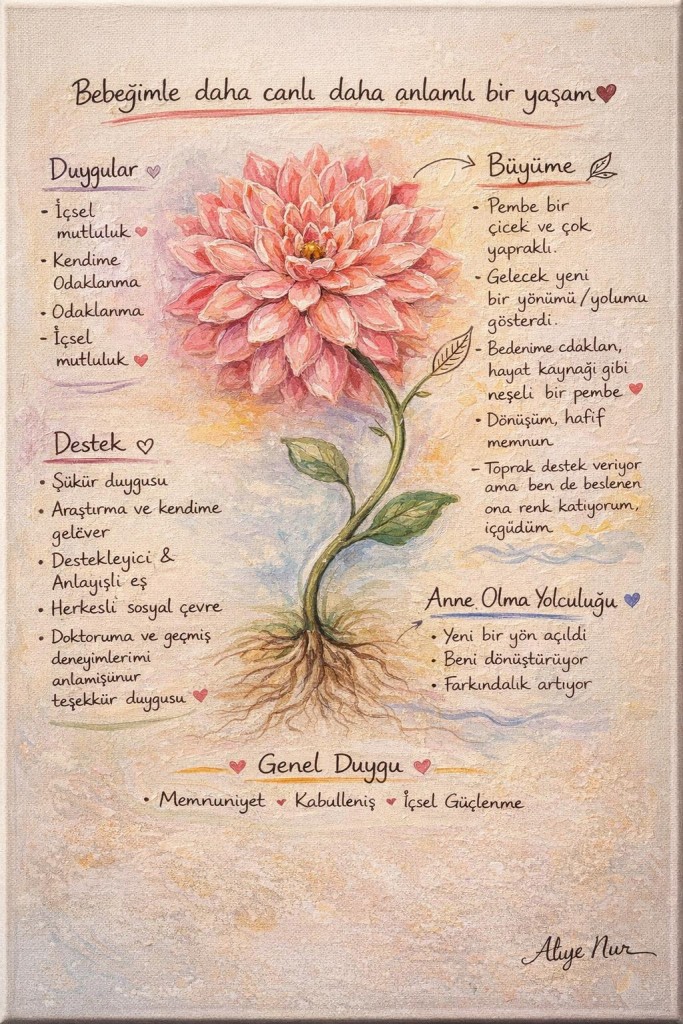 Bebeğimle daha canlı daha anlamlı bir yaşam
Duygular
- İçsel
mutluluk
• Kendime
Odaklanma
• Odaklanma
- İçsel
mutluluk
Destek
• Şükür duygusu
• Araştırma ve kendime
gelëver
• Destekleyici &
Anlayışli eş
• Herkesli sosyal çevre
• Doktoruma ve geçmiş
deneyimlerimi
anlamişünur
teşekkür duygusu
Büyüme
• Pembe bir
çicek ve çok
yapraklı.
- Gelecek yeni
bir yönümü/yolumu
gösterdi.
- Bedenime cdaklan,
hayat kaynaği gibi
neşeli bir pembe
• Dönüşüm, hafif
memnun
- Toprak destek veriyor
ama ben de beslenen
ona renk katıyorum,
içgüdüm
Anne Olma Yolculuğu
• Yeni bir yön açıldi
• Beni dönüştürüyor
• Farkındalık artıyor
Genel Duygu
• Memnuniyet Kabulleniş İçsel Güçlenme
Aliye Nur